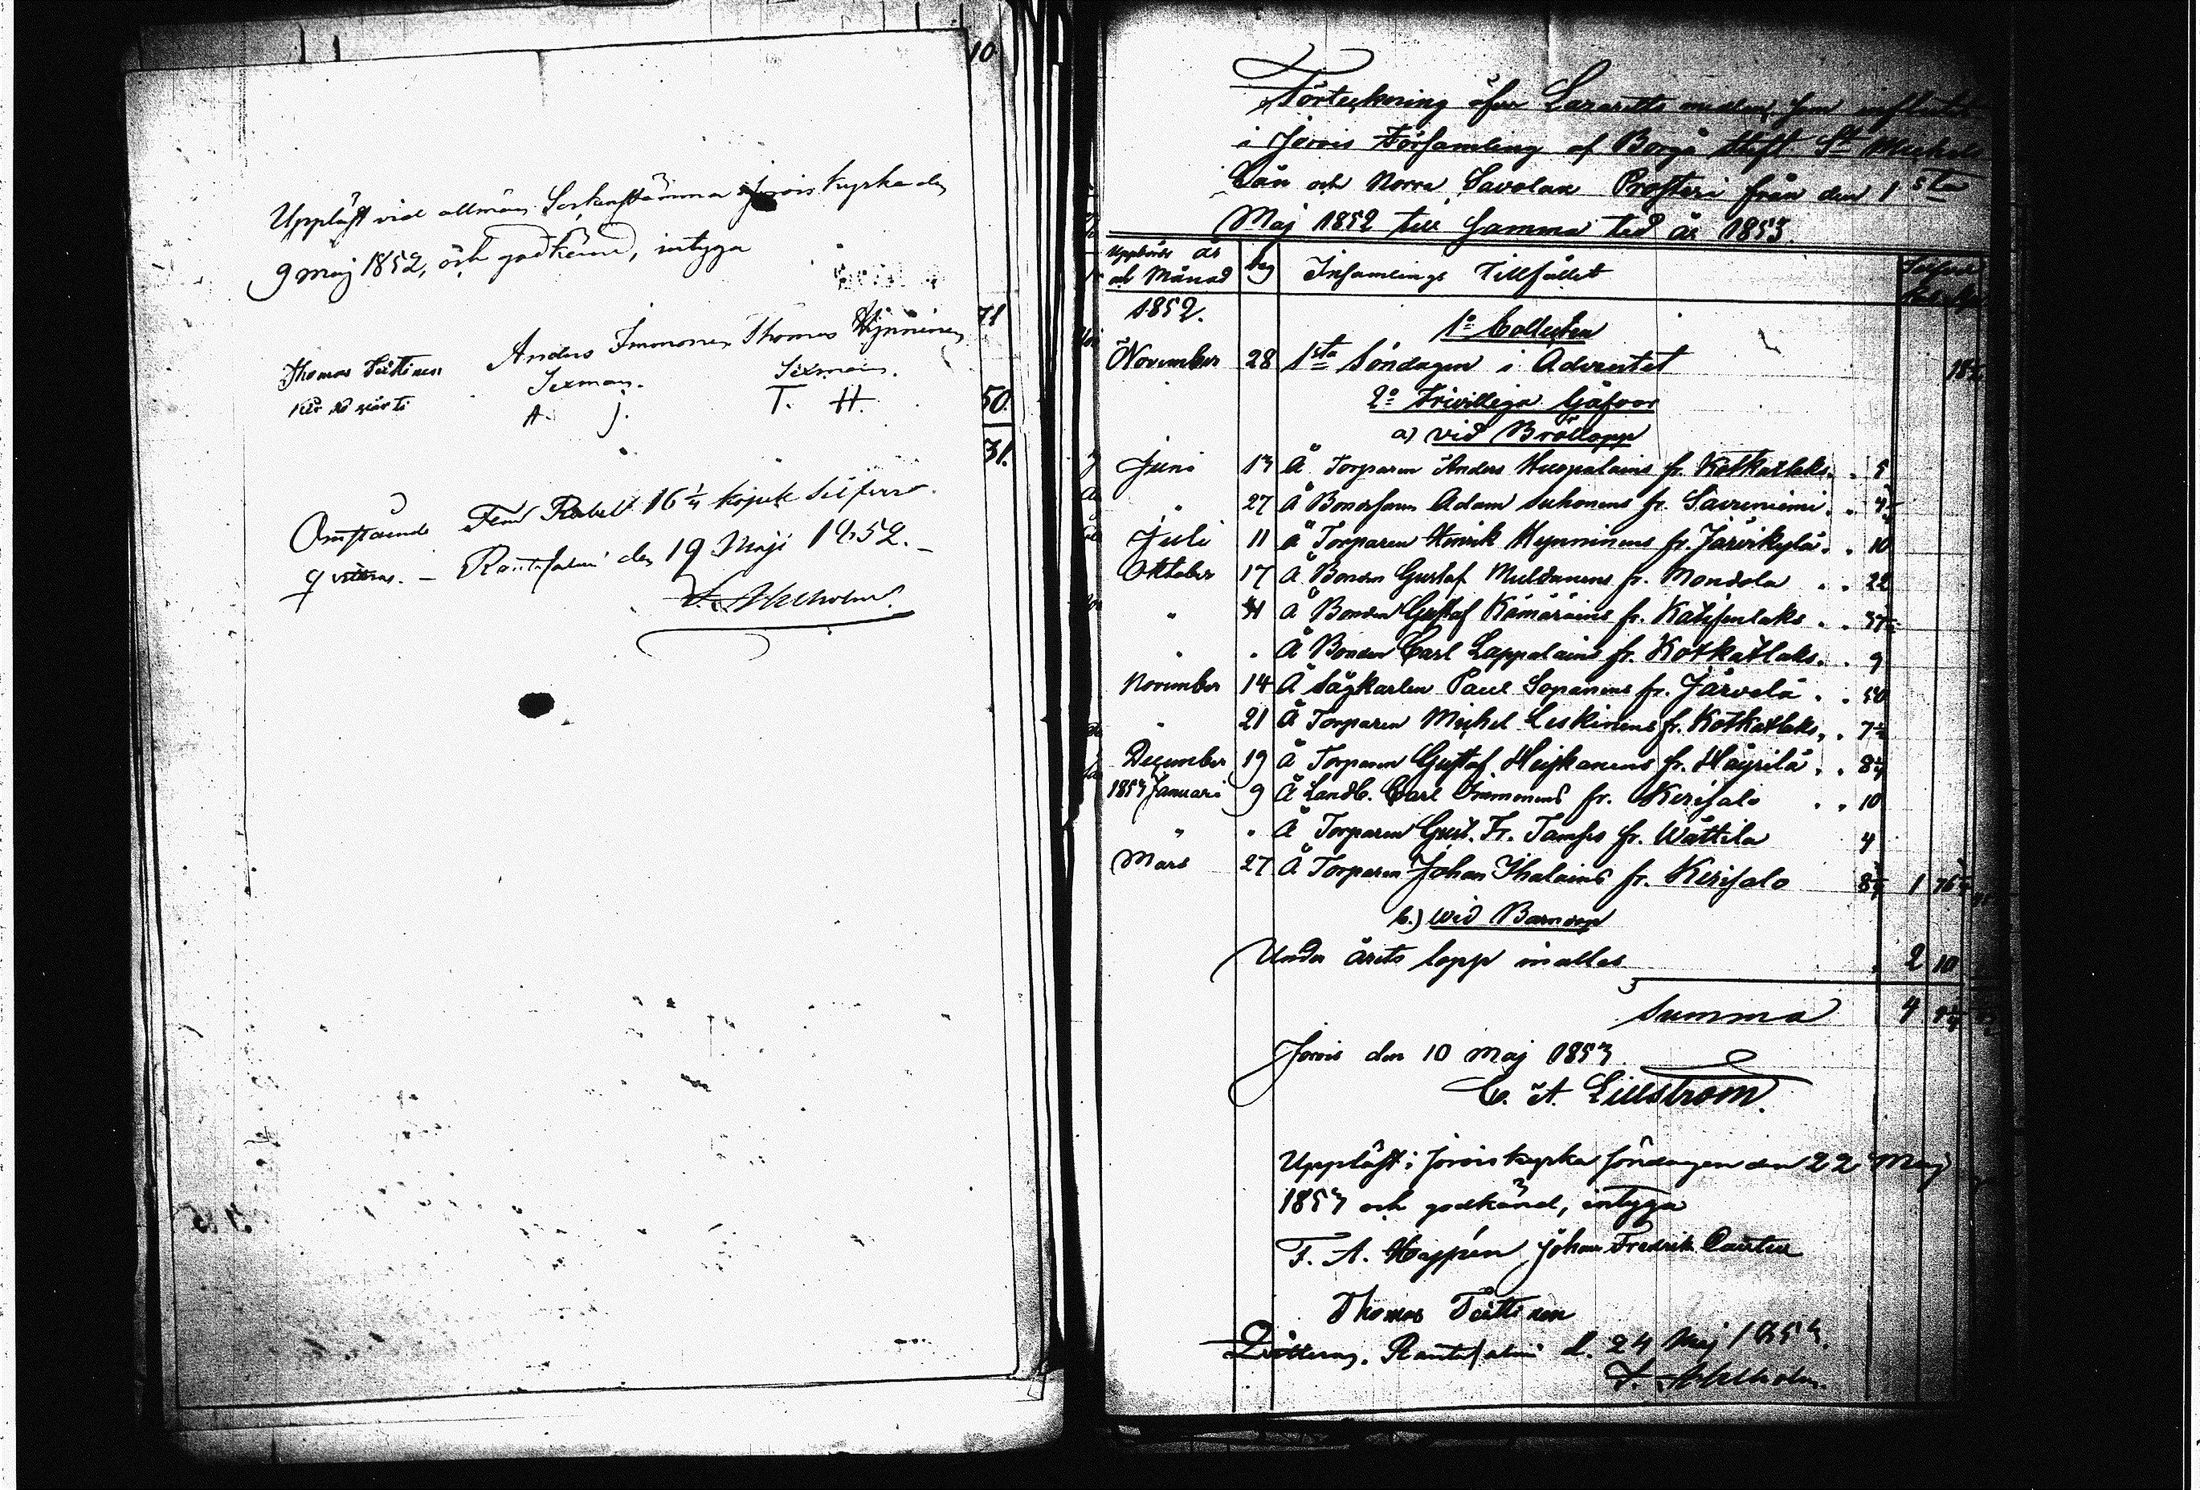 10
Uppläst vid allmän Sockenstämma i Jorois Kyrka den
9 Maj 1852, och godkänd, intyga
71
Thomas Teittinen Anders Immonen Thomas Hynninen
Sexman. Sexman.
A. J. T. H.
50.
31.
Omstående Fem Rubel 16 1/4 kopek Silfver
qvitteras. – Rantasalmi den 19 Maji 1852. –
Förteckning öfver Lazaretts medlen, som influtit
i Jorois Församling af Borgå Stift St Michels
Län och Norra Savolax Prosteri från den 1sta
Maj 1852 till samma tid år 1853.
Uppbörds år och Månad Dag Insamlings Tillfället
1852.
1o Collecten
November 28 1sta Söndagen i Adventet
2o Frivilliga Gåfvor
a) vid Bröllopp
Juni 13 Å Torparen Anders Huspalains fr. Kotkatlaks . . 5
" 27 Å Bondesonen Adam Suhonens fr. Savuniemi
Juli 11 Å Torparen Henrik Hynninens fr. Järvikylä . . 10
Oktober 17 Å Bonden Gustaf Muldanens fr. Mondola . . 22
" 31 Å Bonden Gustaf Kämäräins fr. Katisenlaks . .
" " Å Bonden Carl Lappalains fr. Kotkatlaks . . 9
November 14 Å Sågkarlen Paul Sopanens fr. Järvelä . . 50
" 21 Å Torparen Michel Leskinens fr. Kotkatlaks . .
December 19 Å Torparen Gustaf Heiskanens fr. Häyrilä . .
1853 Januari 9 Å Landb. Carl Immonens fr. Kerisalo . . 10
" " Å Torparen Gust. Fr. Tamses fr. Wättilä 4
Mars 27 Å Torparen Johan Ihalains fr. Kerisalo
b.) Wid Barndop
Under årets lopp inalles 2 10
Summa 4
Jorois den 10 Maj 1853
C. A. Lillström.
Uppläst i Jorois kyrka söndagen den 22 Maj
1853 och godkänd, intyga
F. A. Hoppén Johan Fredrik
Thomas Teittinen
Qvitteras. Rantasalmi d. 24 Maj 1853.